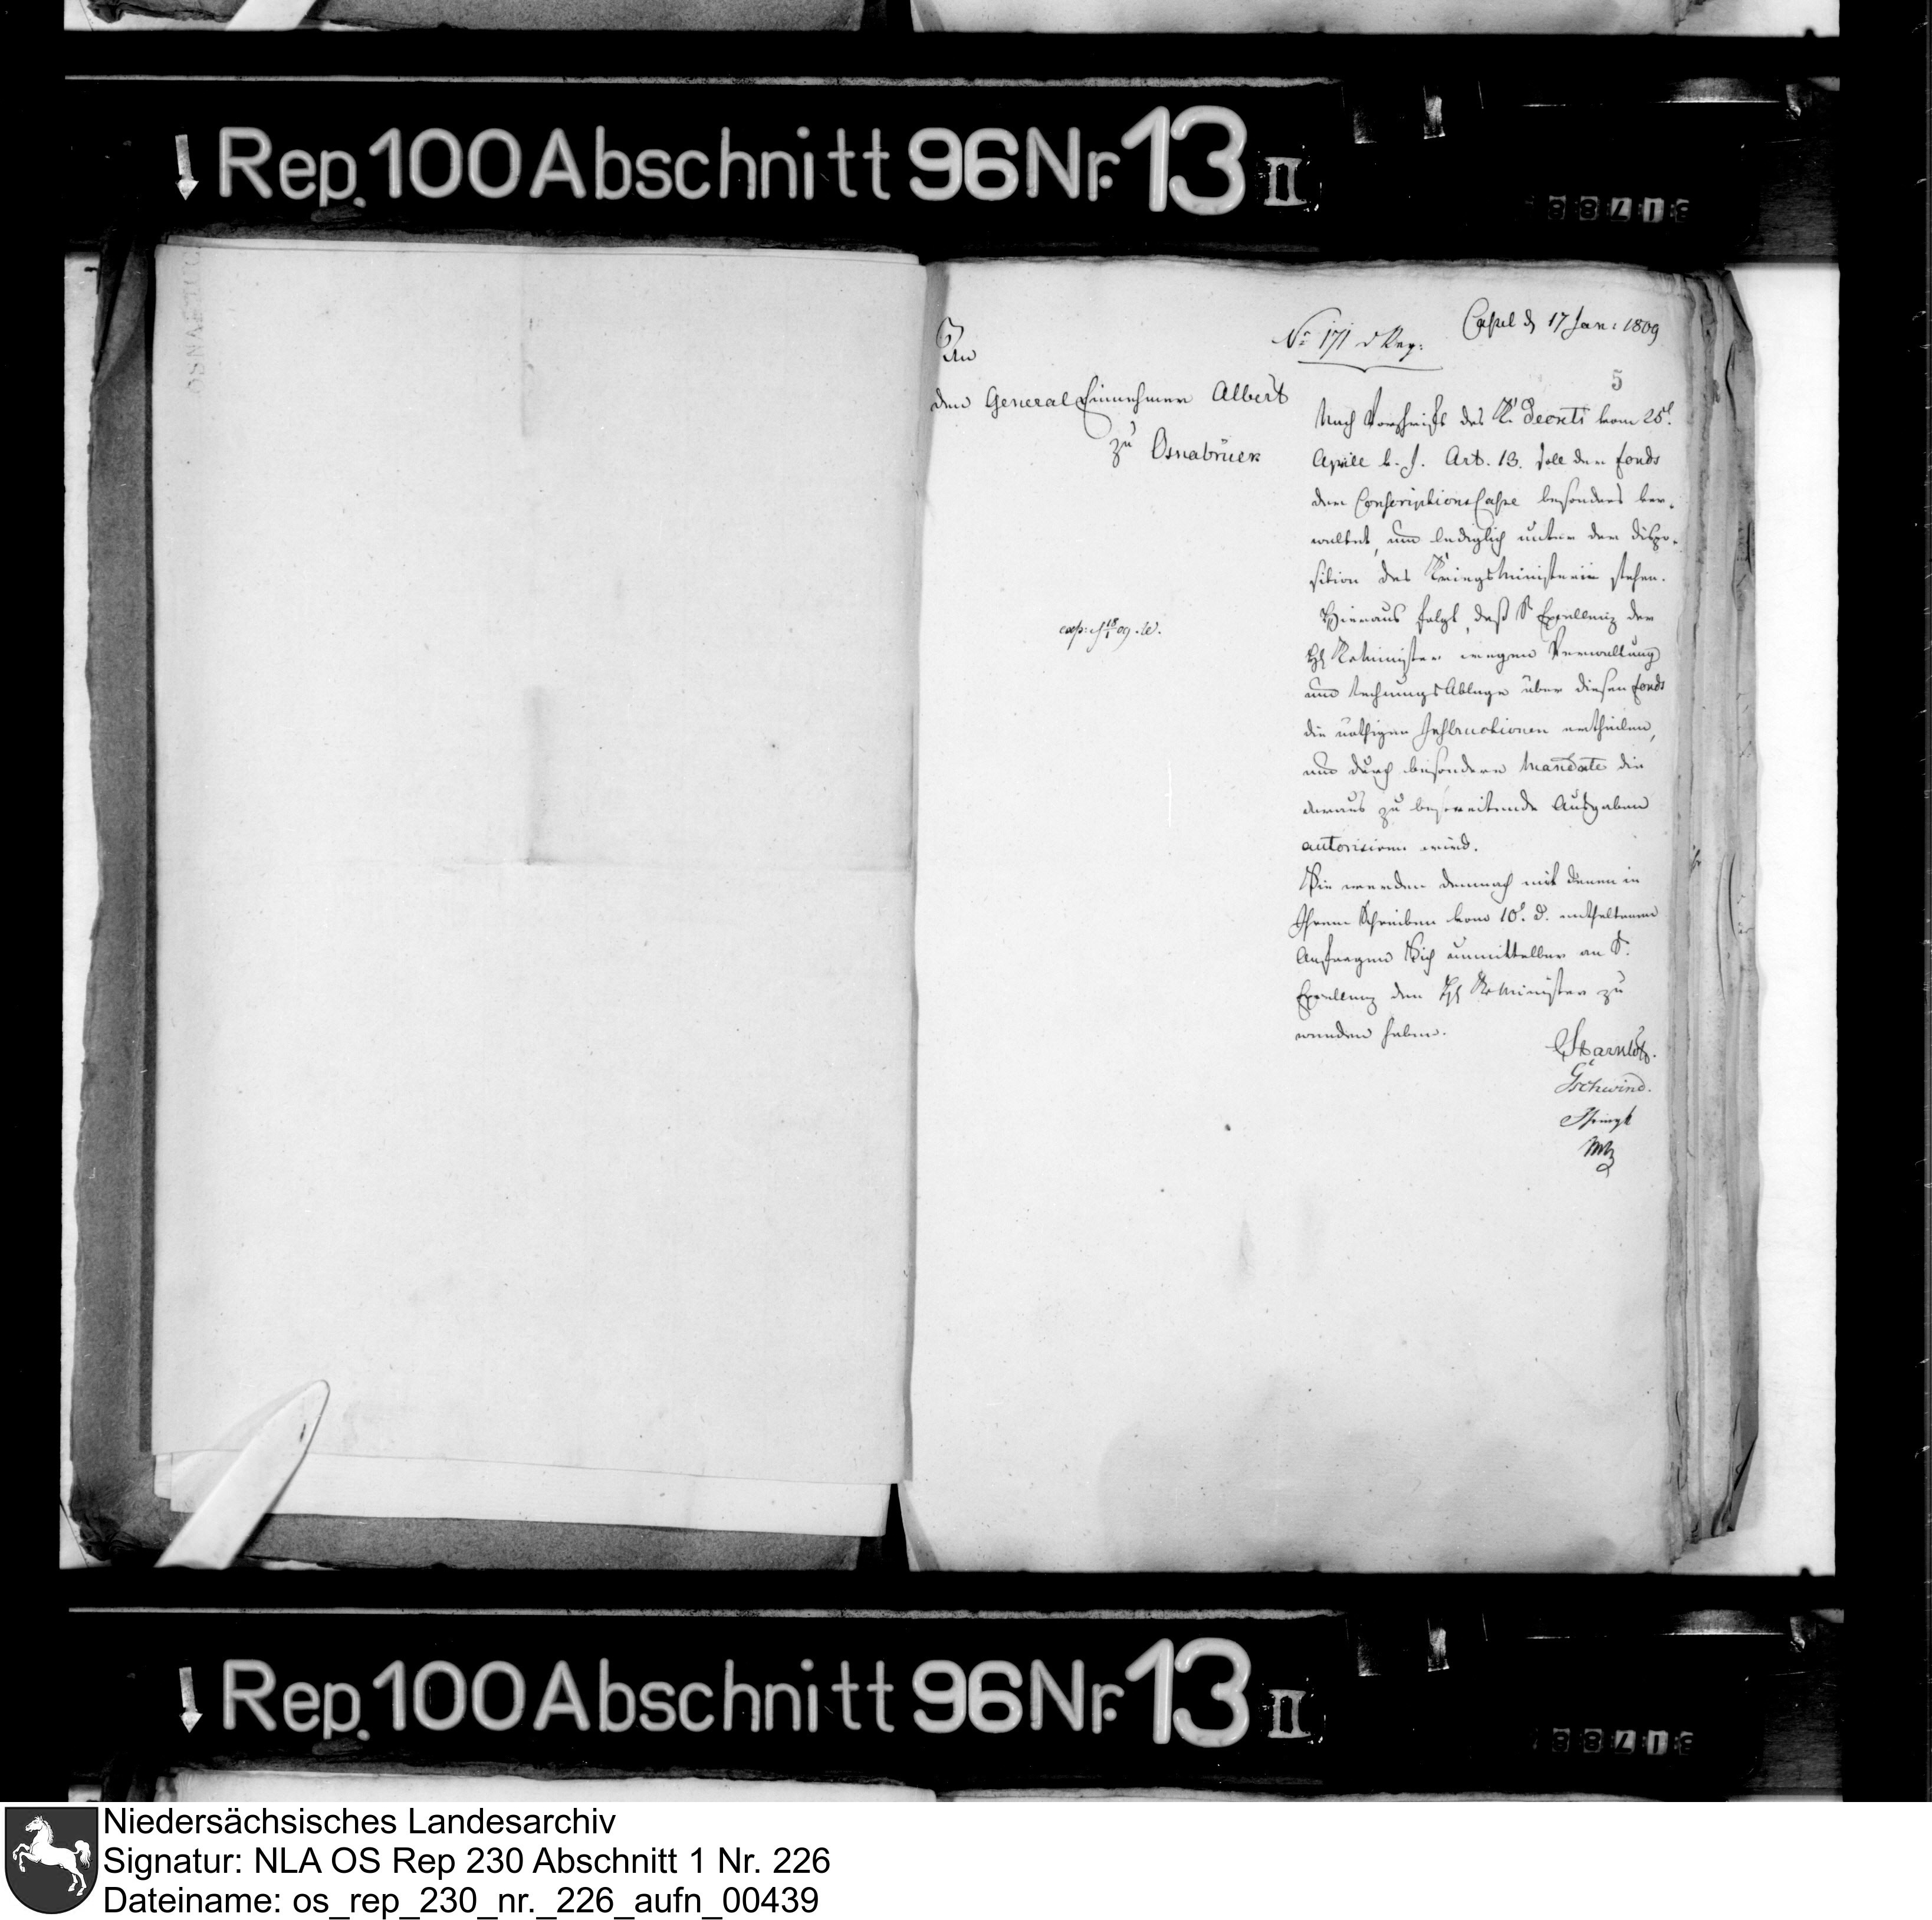 Rep. 100 Abschnitt 96 Nr. 13 II
Cassel d 17 Jan: 1809
No 171 d Reg:
An
den General Einnehmer Albert
zu Osnabrück
5
Nach Vorschrift des K. Decrets vom 25t.
April v. J. Art. 13. soll der Fonds
der Conscriptions Casse besonders ver-
waltet, und lediglich unter der Dispo-
sition des Kriegs Ministerii stehen.
Hieraus folgt, daß Sr Excellenz der
H Kr Minister wegen Verwaltung
und Rechnungs Ablage über diesen Fonds
die nöthigen Instructionen ertheilen,
und durch besondere Mandate die
daraus zu bestreitende Ausgaben
autorisiren wird.
Sie werden demnach mit denen in
Ihrem Schreiben vom 10t. d. enthaltenen
Anfragen Sich unmittelbar an Sr.
Excellenz den H Kr Minister zu
wenden haben.
exp: 18/1 09. W.
Gschwind.
Rep. 100 Abschnitt 96 Nr. 13 II
Niedersächsisches Landesarchiv
Signatur: NLA OS Rep 230 Abschnitt 1 Nr. 226
Dateiname: os_rep_230_nr._226_aufn_00439